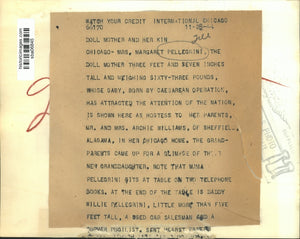 WATCH YOUR CREDIT INTERNATIONAL CHICAGO
66170 11-25-
DOLL MOTHER AND HER KIN
CHICAGO- MRS. MARGARET PELLEGRINI, THE
DOLL MOTHER THREE FEET AND SEVEN INCHES
TALL AND WEIGHING SIXTY-THREE POUNDS,
WHOSE BABY, BORN BY CAESAREAN OPERATION,
HAS ATTRACTED THE ATTENTION OF THE NATION,
IS SHOWN HERE AS HOSTESS TO HER PARENTS,
MR. AND MRS. ARCHIE WILLIAMS, OF SHEFFIELD,
ALABAMA, IN HER CHICAGO HOME. THE GRAND-
PARENTS CAME UP FOR A GLIMPSE OF THEIR
NEW GRANDDAUGHTER. NOTE THAT MAMA
PELLEGRINI SITS AT TABLE ON TWO TELEPHONE
BOOKS. AT THE END OF THE TABLE IS DADDY
WILLIE PELLEGRINI, LITTLE MORE THAN FIVE
FEET TALL, A USED CAR SALESMAN AND A
FORMER PUGILIST. SENT HEARST PAPERS